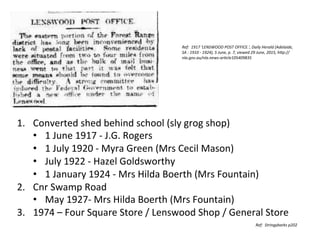 LENSWOOD POST OFFICE.
The eastern portion of the Forest Range
district has long been inconvenienced by
lack of postal facilities. Some residents
were situated from two to four miles from
the office, and as the bulk of mail busi-
ness went to that part it was felt that
some improvement was desirable. A strong
committee has in-
duced the Federal Government to establish
a new office at
Lenswood
Ref: 1917 'LENSWOOD POST OFFICE.', Daily Herald (Adelaide,
SA : 1910 - 1924), 5 June, p. 7, viewed 29 June, 2015, http://
nla.gov.au/nla.news-article105409835
1. Converted shed behind school (sly grog shop)
• 1 June 1917 - J.G. Rogers
• 1 July 1920 - Myra Green (Mrs Cecil Mason)
• July 1922 - Hazel Goldsworthy
• 1 January 1924 - Mrs Hilda Boerth (Mrs Fountain)
2. Cnr Swamp Road
• May 1927- Mrs Hilda Boerth (Mrs Fountain)
3. 1974 – Four Square Store / Lenswood Shop / General Store
Ref: Stringybarks p202